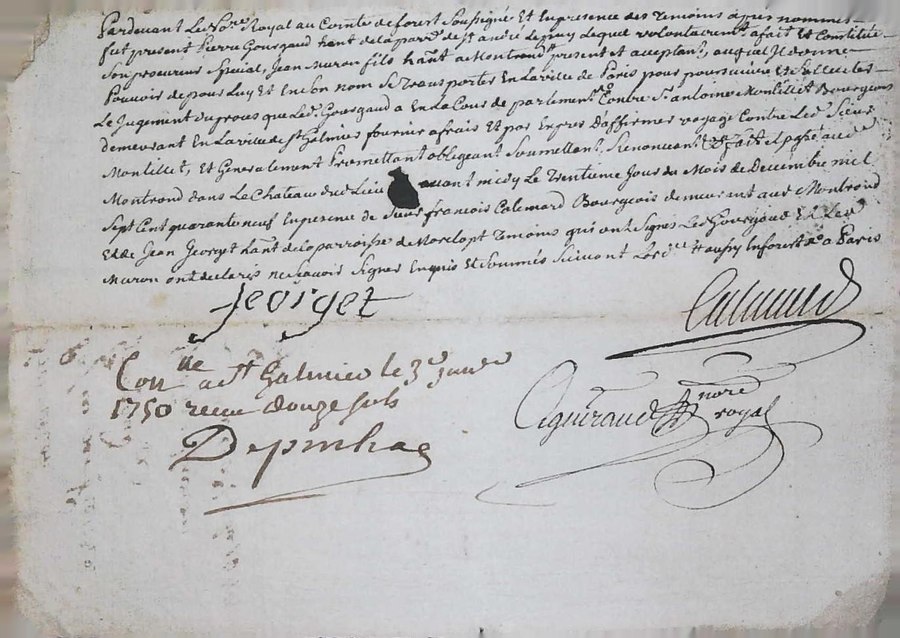 Pardevant Le No.re Royal au Comte de forest Soussigné Et En presence des Temoins apres nommés
fut present Pierre Gourgaud ha.nt de la parr.e de S.t andré Le puy Lequel volontairem.t a fait Et Constitué
Son procureur Special, Jean Muron fils ha.nt a Montrond present et acceptan.t, auquel Il donne
Pouvoir de pour Luy et En Son nom Se Transporter En La ville de Paris pour poursuivre Et Solliciter
Le Jugement du proces que Led. Gourgaud a En La Cour de parlement Contre S.r antoine Montillet Bourgeois
demeurant En La ville de S.t Galmier fournir a frais Et par Expres D'affirmer voyage Contre Led. Sieur
Montillet, et Generalement Promettant obligeant Soumettant Renoncant fait Et passé aud.
Montrond dans Le Chateau dud. Lieu avant midy Le Trentieme Jour du Mois de Decembre mil
Sept Cent quarante neuf En presence de Sieur francois Calemard Bourgeois demeurant aud. Montrond
Et de Jean Jeorget ha.nt de la parroisse de Morclopt Temoins qui ont Signés Led. Gourgaud Et Led.
Muron ont declarés ne Scavoir Signer Enquis Et Sommés Suivant Lord.ce
Jeorget
Calemard
Con.lle a S.t Galmier le 3.e janv.er
1750 recu douze sols
nore
royal